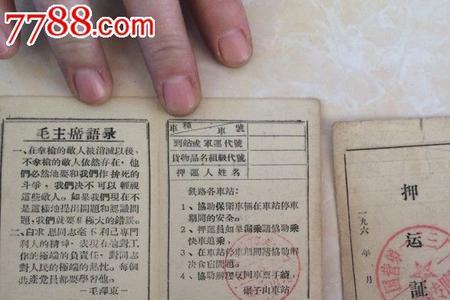 7788.com
毛主席語录
一、在拿槍的敌人被消滅以後,
不拿槍的敌人依然存在,他
們必然地要和我們作拚死的
斗爭,我們决不可以輕視
這些敌人。如果我們現在不
是這樣地提出問題和認識問
題,我們就要犯極大的錯誤。
二、白求恩同志毫不利己專門
利人的精神,表現在他對工
作的極端的負責任,對同志
對人民的極端的热忱。每個
共產党員都要學習他。
—毛澤東—
車種 車號
到站或軍運代號
貨物品名組級代號
押運人姓名
鉄路各車站:
1、協助保衛車輛在車站停車
期間的安全。
2、押運員如果漏乘請協助乘
快車追乘。
3、在車站停車時請協助解
决食宿問題。
4、協助辦理返回車票手續
碾子山車站
押
运
証
一九六 年 月